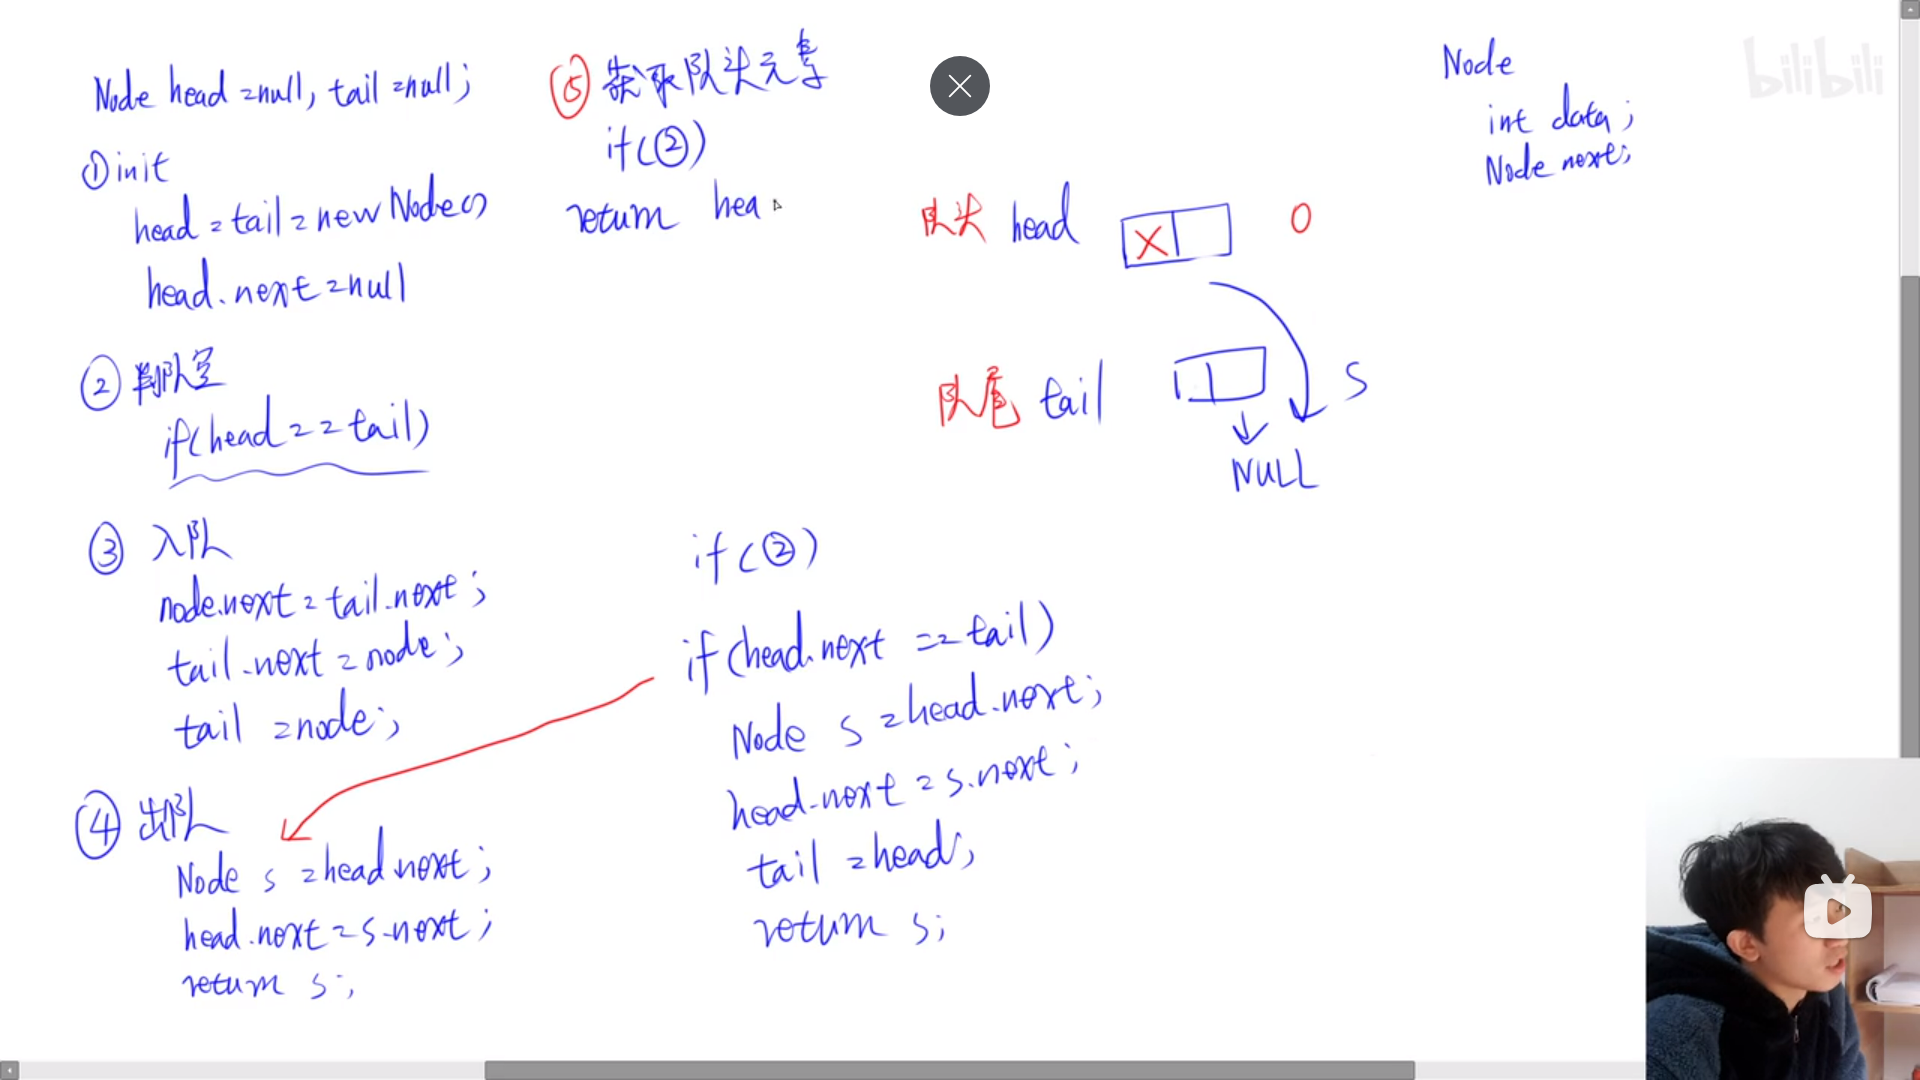 Node head = null, tail = null;
① init
head = tail = new Node()
head.next = null
② 判队空
if(head == tail)
③ 入队
node.next = tail.next;
tail.next = node;
tail = node;
④ 出队
Node s = head.next;
head.next = s.next;
return s;
⑤ 获取队头元素
if(②)
return hea
if(②)
if(head.next == tail)
Node s = head.next;
head.next = s.next;
tail = head;
return s;
队头 head X 0
队尾 tail S
NULL
Node
int data;
Node next;
bilibili